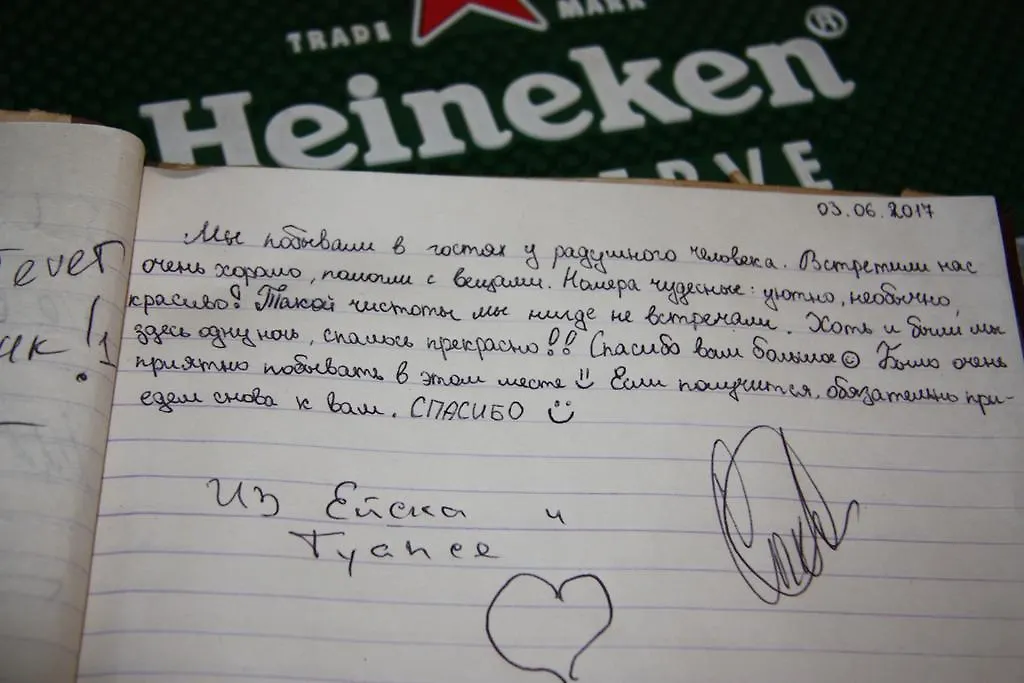 TRADE MARK
Heineken®
ERVE
03.06.2017
Мы побывали в гостях у радушного человека. Встретили нас
очень хорошо, помогли с вещами. Номера чудесные: уютно, необычно,
красиво! Такой чистоты мы нигде не встречали. Хоть и были мы
здесь одну ночь, спалось прекрасно!! Спасибо вам большое☺ Было очень
приятно побывать в этом месте☺ Если получится, обязательно при-
едем снова к вам. СПАСИБО ☺
Из Ейска и
Туапсе
ever
ик!